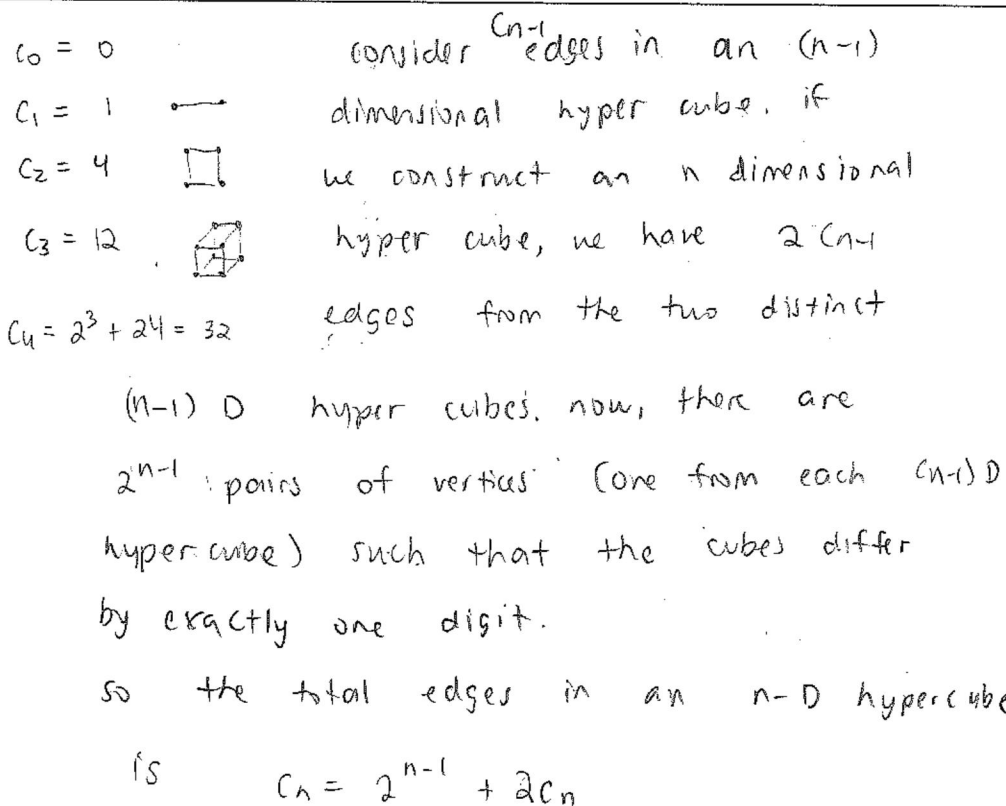 C₀ = 0
C₁ = 1
C₂ = 4
C₃ = 12
C₄ = 2³ + 24 = 32
consider Cₙ₋₁ edges in an (n-1)
dimensional hyper cube. if
we construct an n dimensional
hyper cube, we have 2 Cₙ₋₁
edges from the two distinct
(n-1) D hyper cubes. now, there are
2ⁿ⁻¹ pairs of vertices (one from each (n-1) D
hyper cube) such that the cubes differ
by exactly one digit.
so the total edges in an n-D hypercube
is Cₙ = 2ⁿ⁻¹ + 2Cₙ